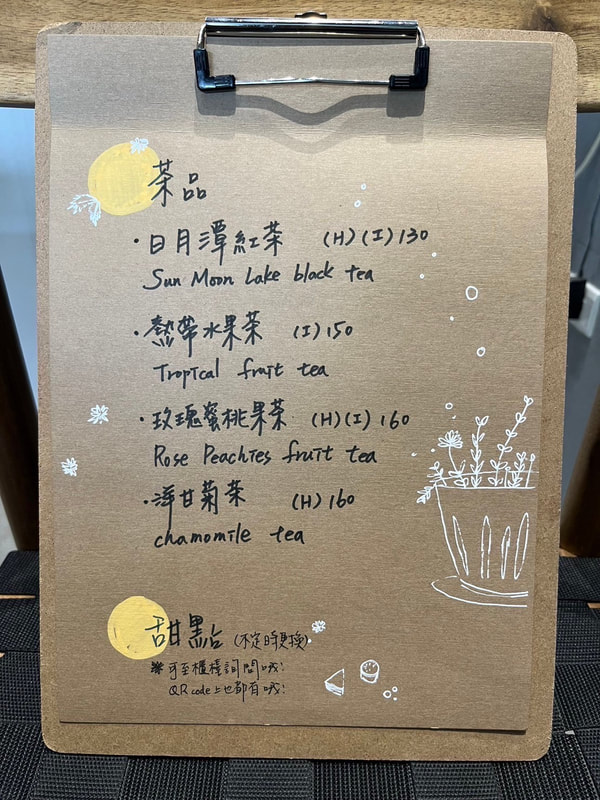 茶品
・日月潭紅茶 (H)(I)130
Sun Moon Lake black tea
・熱帶水果茶 (I)150
Tropical fruit tea
・玫瑰蜜桃果茶 (H)(I)160
Rose Peachies fruit tea
・洋甘菊茶 (H)160
chamomile tea
甜點(不定時更換)
※可至櫃檯詢問哦!
QR code上也都有哦!